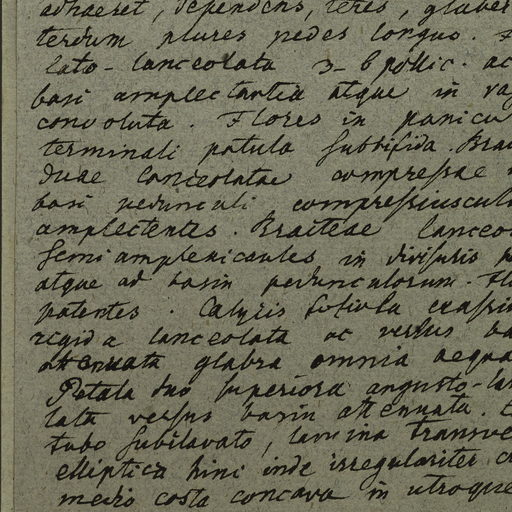 adhaeret, dependens, teres, glaber
terdum plures pedes longus.
lato-lanceolata 3-6 pollic. ac
basi amplectantia atque in va
convoluta. Flores in panicu
terminali patula subbifida. Brac
duae lanceolatae compressae
basi pedunculi compressiuscul
amplectentes. Bracteae lanceo
semiamplexicaules in divisuris p
atque ad basin pedunculorum. Fl
patentes. Calycis foliola crassiu
rigida lanceolata ac versus ba
attenuata glabra omnia aequa
Petala duo superiora angusto-lan
lata versus basin attenuata.
tubo subclavato, lamina transve
elliptica hinc inde irregulariter c
medio costa concava in utroque